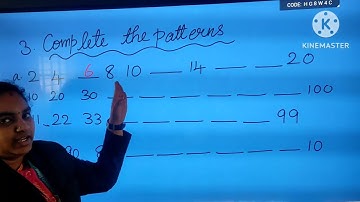 CODE: HG8W4C
KINEMASTER
3. Complete the patterns
a. 2 4 6 8 10 __ 14 __ __ 20
10 20 30 __ __ __ __ __ __ 100
11 22 33 __ __ __ __ __ 99
90 8 __ __ __ __ __ __ 10